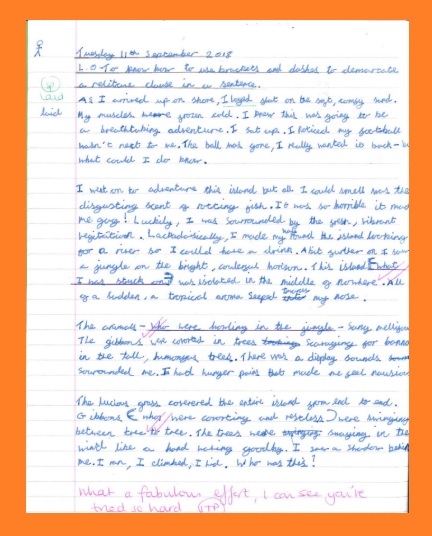 Tuesday 11th September 2018
L.O To know how to use brackets and dashes to demarcate
a relitive clause in a sentence.
sp
laid
laid
As I arrived up on shore, I layed flat on the soft, comfy sand.
My muscles were frozen cold. I knew this was going to be
a breathtaking adventure. I sat up. I noticed my football
wasn't next to me. The ball was gone, I really wanted it back -
what could I do know.
I went on to adventure this island but all I could smell was the
disgusting scent of rotting fish. It was so horrible it mad
me gag! Luckily, I was sourrounded by the fresh, vibrant
vegitation. Lackadaisically, I made my way round the island looking
for a river so I called have a drink. Abit further on I saw
a jungle on the bright, coulerful horison. This island (what
I was stuck on) was isolated in the middle of nowhere. All
of a sudden, a tropical aroma seeped through my nose.
The animals - who were howling in the jungle - sang
The gibbons were in trees scavenging for
in the tall, humongus trees. There was a display sounds
sourrounded me. I had hunger pains that made me feel
The lucious grass coverered the entire island from end to end.
Gibbons (who were covorting and restless) were swinging
between tree to tree. The trees were swaying in the
wind like a hand waving goodby. I saw a shadow behin
me. I ran, I climbed, I hid. Who was this!
What a fabulous effort, I can see you've
tried so hard TP